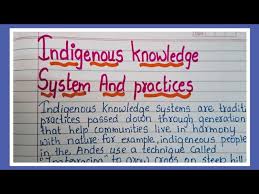 Indigenous knowledge
System And practices
Indigenous knowledge systems are tradit
practices passed down through generation
that help communities live in harmony
with nature for example, indigenous people
in the Andes use a technique called
to grow crops on steep hill